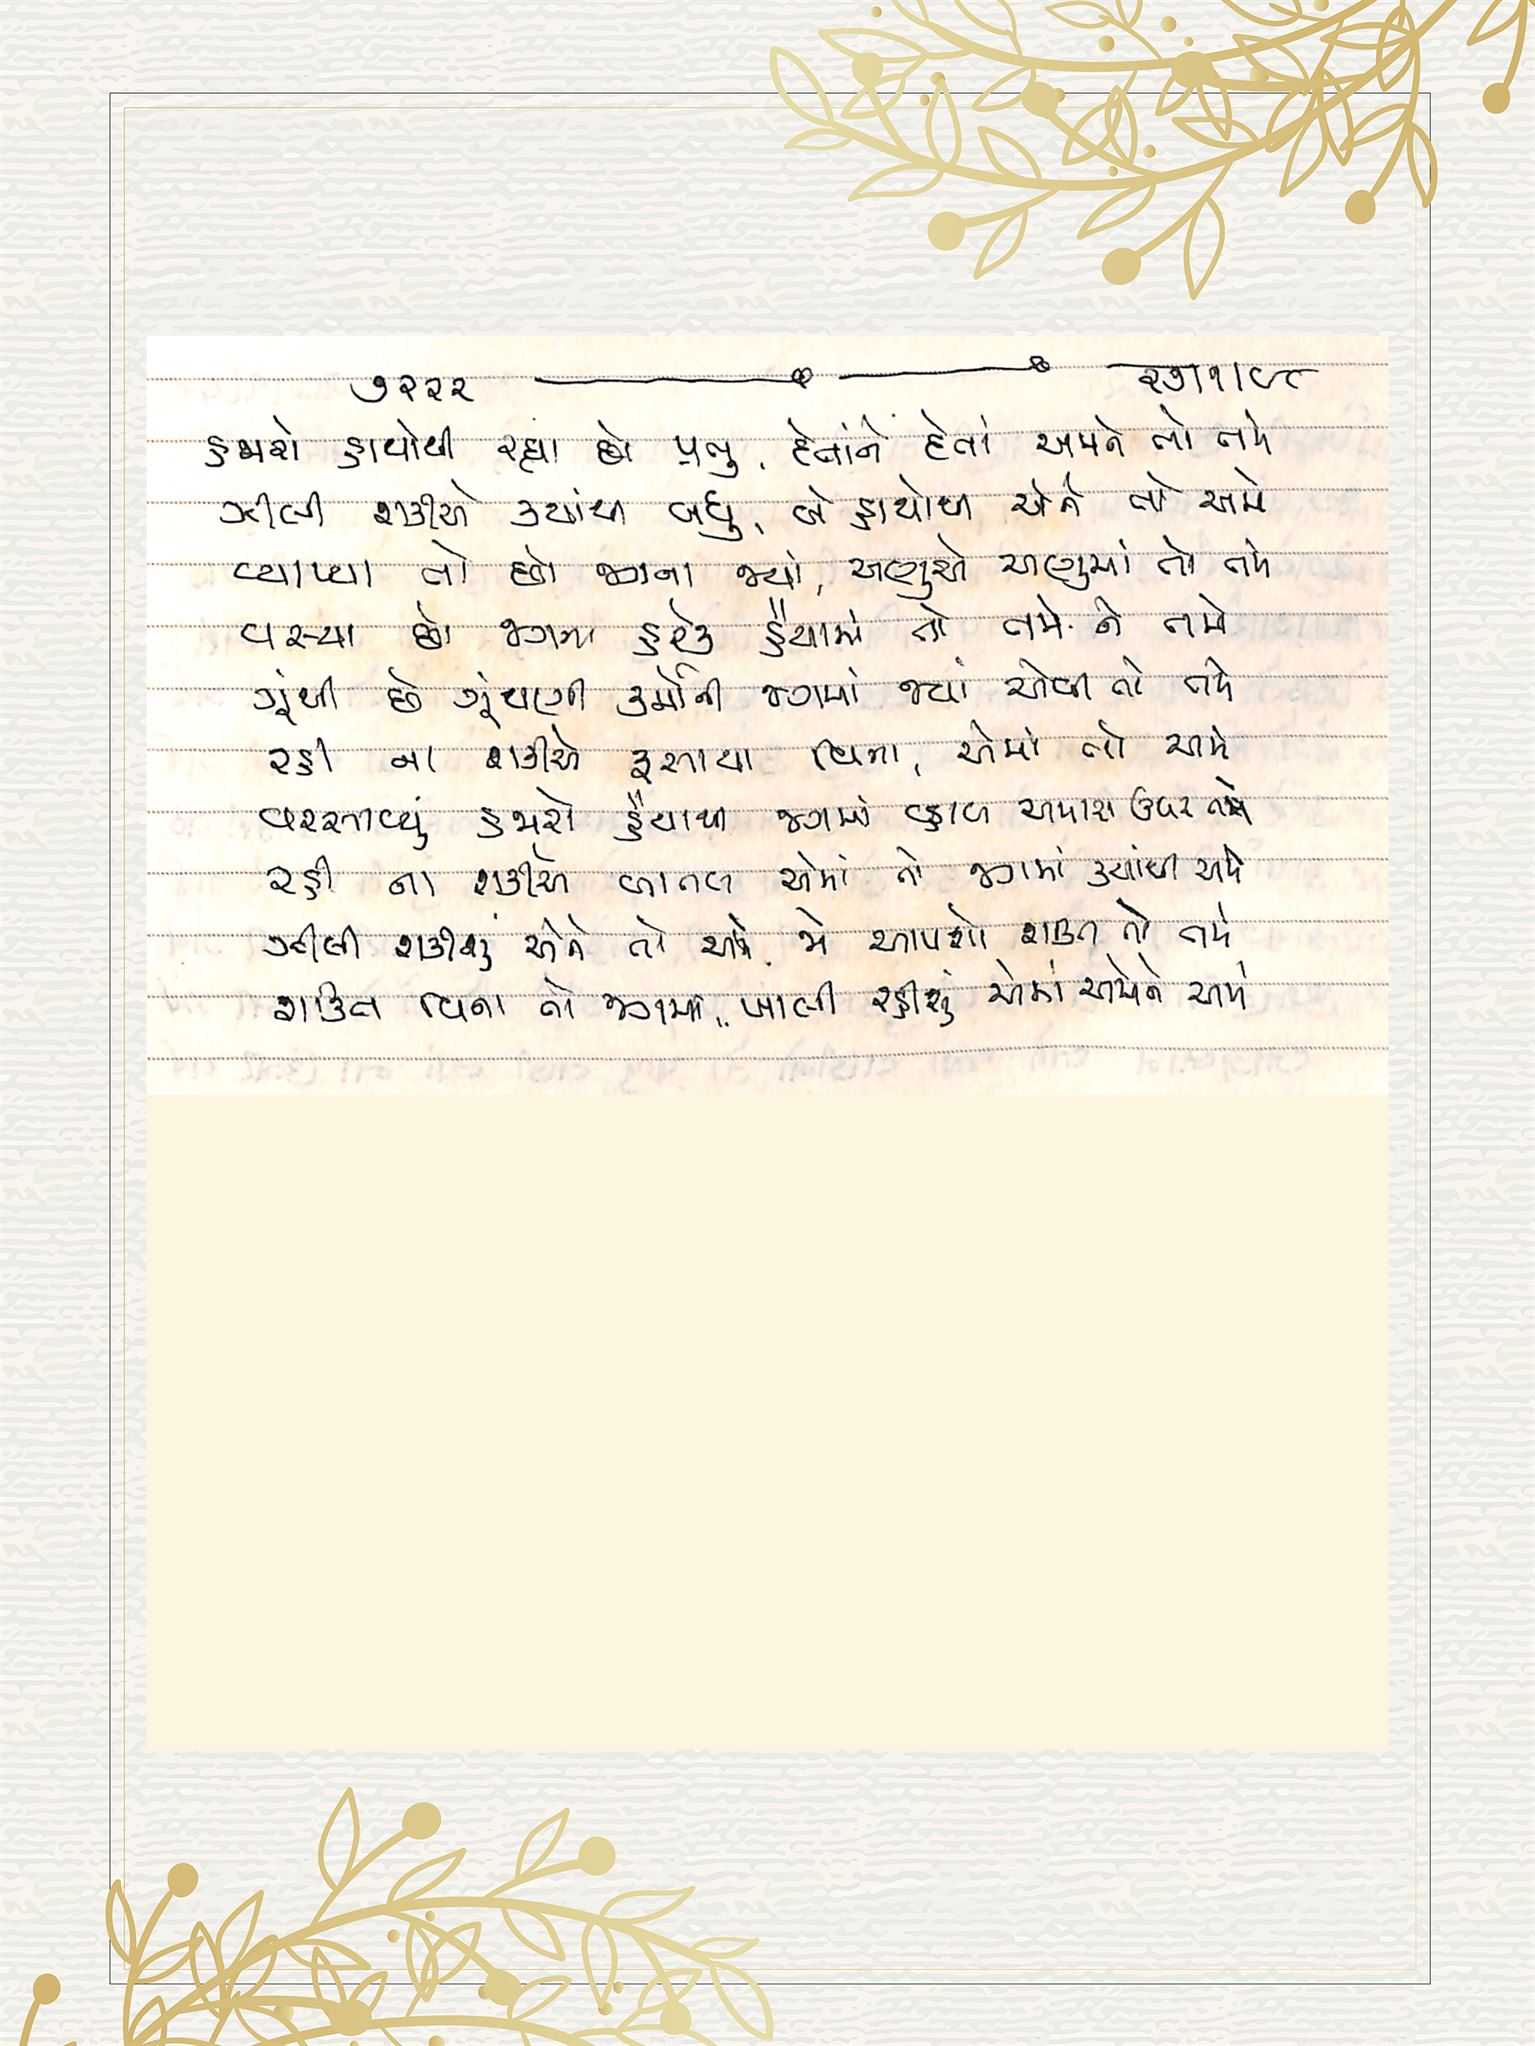 ૭૨૨૨ ૨૭/૧/૯૮
હજારો હાથોથી રહ્યા છો પ્રભુ, દેતાંને દેતાં અમને તો તમે
ઝીલી શકીએ ક્યાંથી બધું, બે હાથોથી એને તો અમે
વ્યાપ્યા તો છો જગના જ્યાં, અણુએ અણુમાં તો તમે
વસ્યા છો જગના હરેક હૈયામાં તો તમે ને તમે
ગૂંથી છે ગૂંથણી કર્મોની જગમાં જ્યાં એવી તો તમે
રહી ના શકીએ ફસાયા વિના, એમાં તો અમે
વરસાવ્યું હજારો હૈયાથી જગમાં વ્હાલ અમારા ઉપર તમે
રહી ના શકીએ બાતલ એમાં તો જગમાં ક્યાંથી અમે
ઝીલી શકીશું એને તો અમે, જો આપશો શક્તિ તો તમે
શક્તિ વિના તો જગમાં, ખાલી રહીશું એમાં અમેને અમે